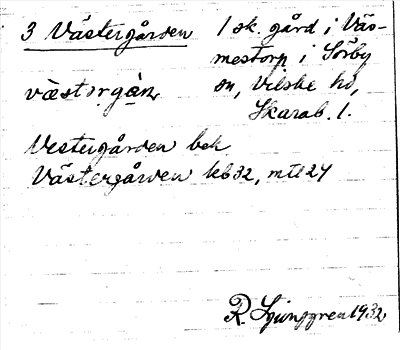 3 Västergården
1 sk. gård i Väs-
mestorp i Sörby
sn, Vilske hd,
Skarab. l.
væstərgàn
Vestergården bek
Västergården kb32, mtl24
R. Ljunggren 1932